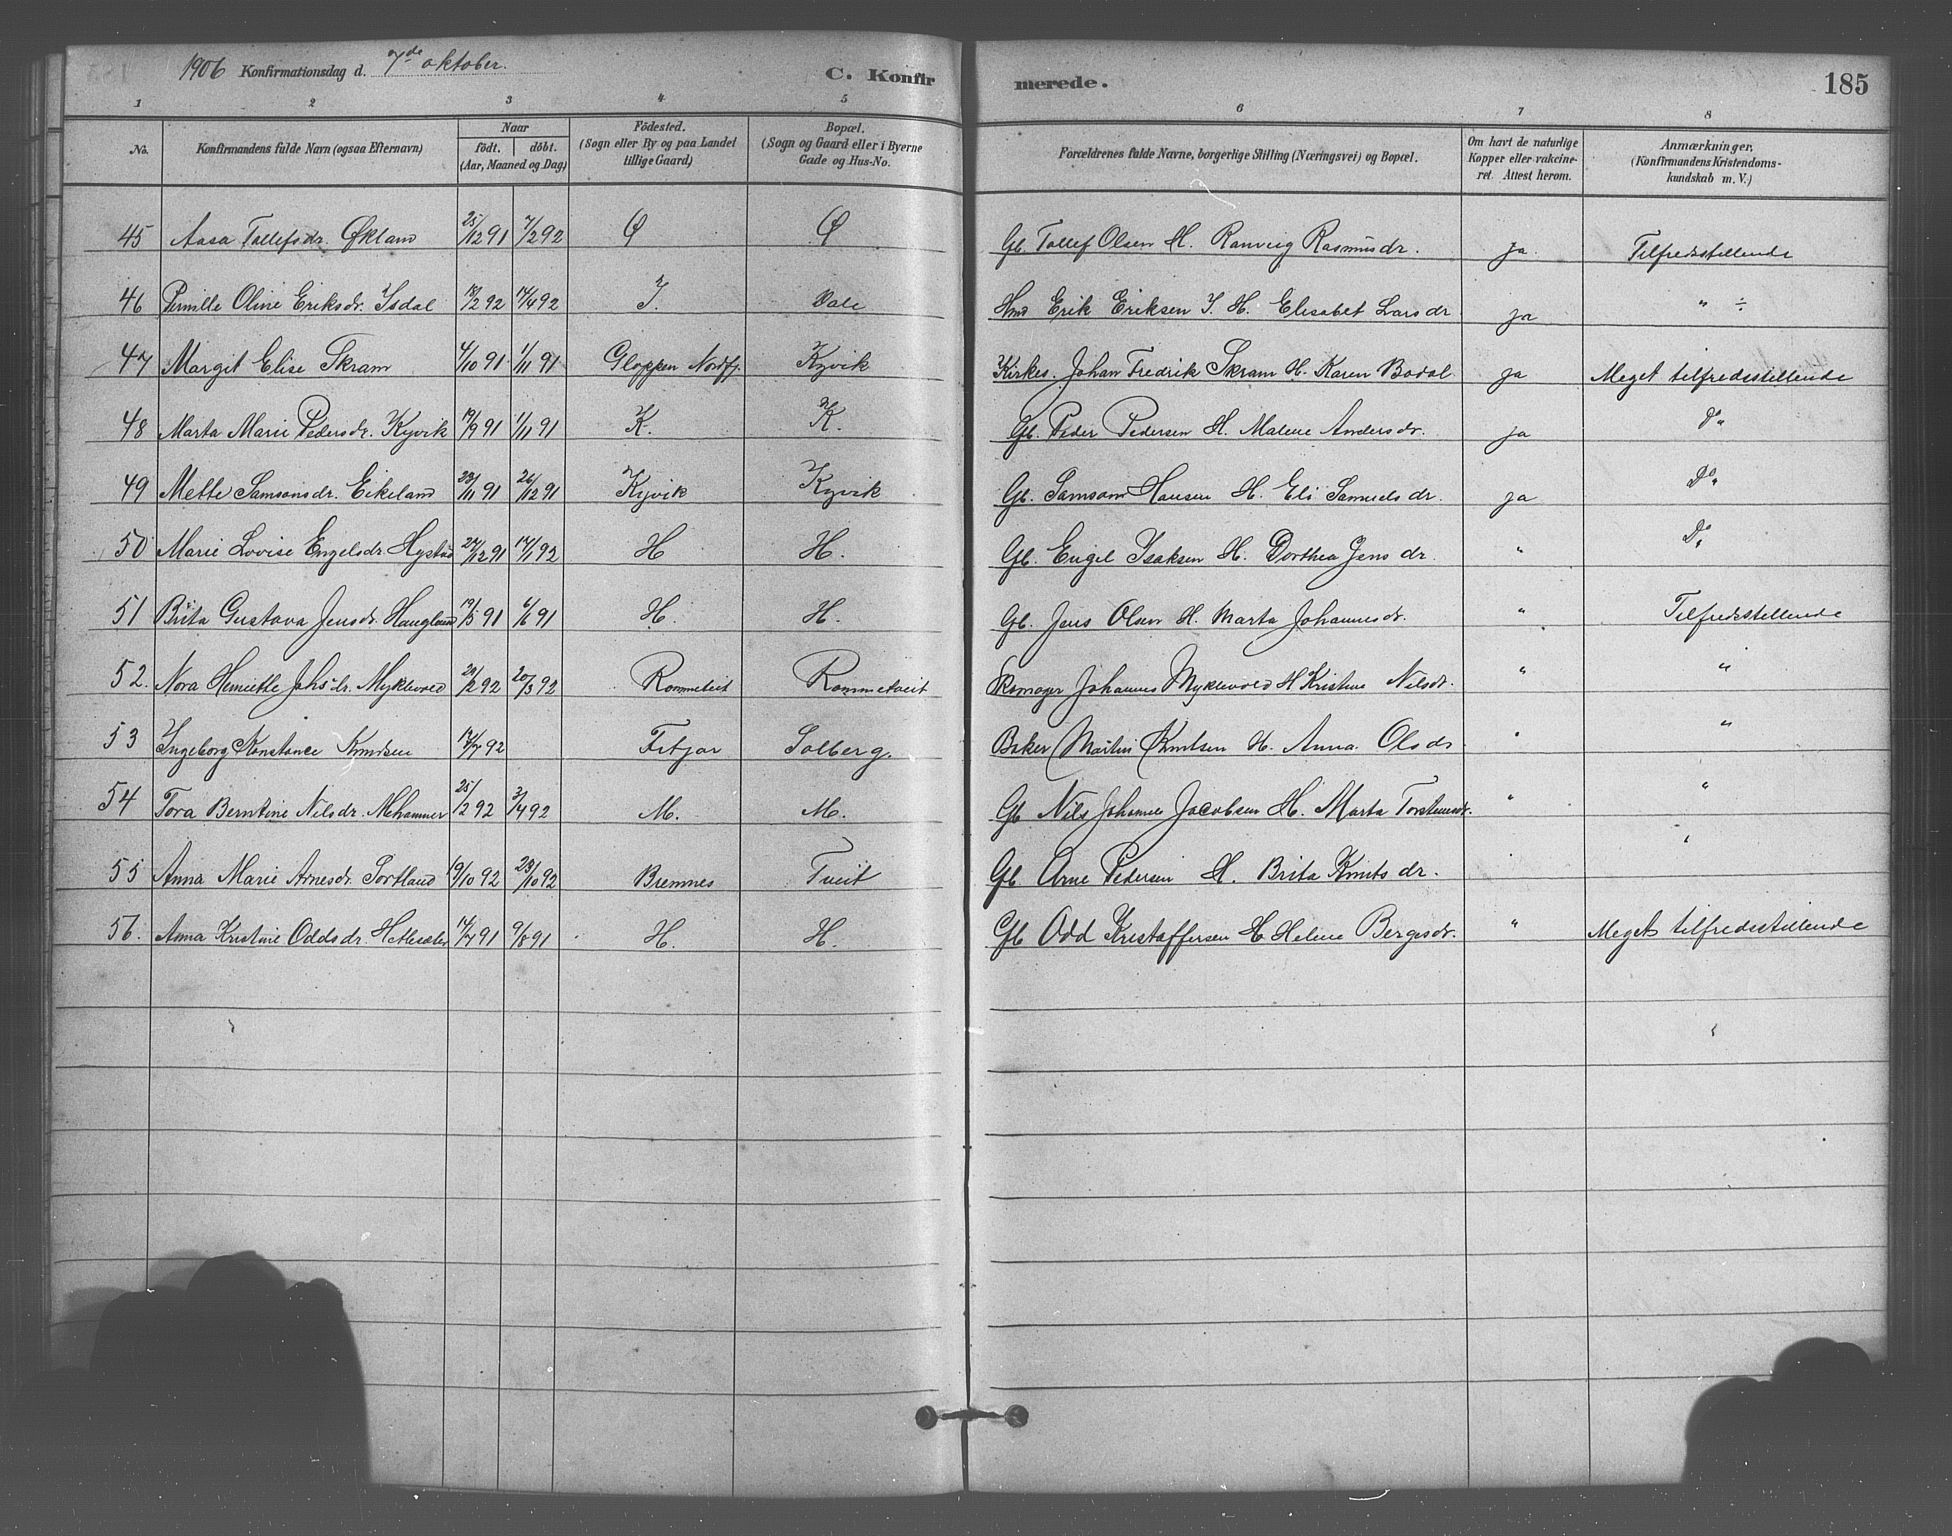 1906 Konfirmationsdag d. 7de oktober. C. Konfirmerede. 185
1 2 3 4 5 6 7 8
No. Konfirmandens fulde Navn (ogsaa Efternavn) Naar födt. döbt. (Aar, Maaned og Dag) Födested. (Sogn eller By og paa Landet tillige Gaard) Bopæl. (Sogn og Gaard eller i Byerne Gade og Hus-No. Forældrenes fulde Navne, borgerlige Stilling (Næringsvei) og Bopæl. Om havt de naturlige Kopper eller vakcineret. Attest herom. Anmærkninger. (Konfirmandens Kristendomskundskab m. V.)
45 Aasa Tollefsdr. Økland 25/12 91 7/2 92 Ø Ø Gb. Tollef Olsen H. Ranveig Rasmusdr. ja. Tilfredsstillende
46 Pernille Oline Eriksdr. Isdal 18/2 92 17/4 92 I. Vale Hmd Erik Eriksen I. H. Elisabet Larsdr ja " ÷
47 Margit Elise Skram 4/10 91 1/11 91 Gloppen Nordfj. Kyvik Kirkes. Johan Fredrik Skram H. Karen Bødal ja Meget tilfredsstillende
48 Marta Marie Pedersdr. Kyvik 19/9 91 1/11 91 K. K. Gb. Peder Pedersen H. Malene Andersdr. ja Do
49 Mette Samsonsdr. Eikeland 23/11 91 26/12 91 Kyvik Kyvik Gb. Samson Hansen H. Eli Samuelsdr. ja Do
50 Marie Lovise Engelsdr. Hystad 27/12 91 17/1 92 H H. Gb. Engel Isaksen H. Dorthea Jensdr. " Do
51 Brita Gustava Jensdr. Haugland 19/5 91 6/6 91 H. H. Gb. Jens Olsen H. Marta Johannesdr. " Tilfredsstillende
52. Nora Henriette Johsdr. Myklevold 29/2 92 20/3 92 Rommetveit Rommetveit Skomager Johannes Myklevold H Kristine Nilsdr. " "
53 Ingeborg Konstance Knudsen 92 Fitjar Solberg. Baker Martin Knutsen H. Anna Olsdr " "
54 Tora Berntine Nilsdr. Mehammer 25/2 92 3/4 92 M. M. Gb Nils Johannes Jacobsen H. Marta Torstensdr. " "
55 Anna Marie Arnesdr. Sortland 19/10 92 23/10 92 Bremnes Tveit Gb Arne Pedersen H. Brita Knutsdr. " "
56. Anna Kristine Oddsdr. 14/7 91 9/8 91 H. H. Gb Odd Kristoffersen H Helene Bergesdr. " Meget tilfredsstillende